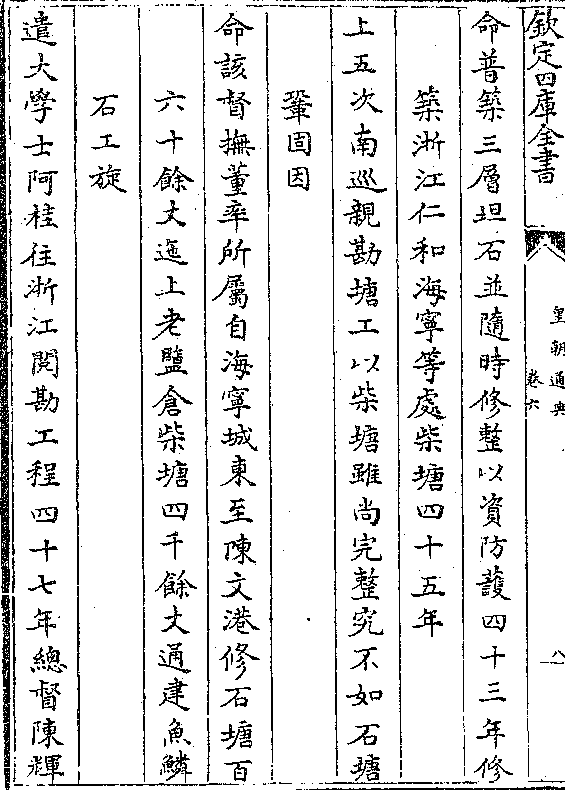 欽定四庫全書
皇朝通典
卷六
八
命普築三層坦石並隨時修整以資防護四十三年修
築浙江仁和海寧等處柴塘四十五年
上五次南巡親勘塘工以柴塘雖尚完整究不如石塘
鞏固因
命該督撫董率所屬自海寧城東至陳文港修石塘百
六十餘丈迤上老鹽倉柴塘四千餘丈通建魚鱗
石工旋
遣大學士阿桂往浙江閱勘工程四十七年總督陳輝